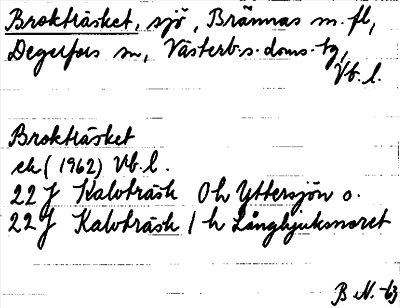 Brokträsket, sjö, Brännas m. fl,
Degerfors sn, Västerb. s. doms. tg,
Vb. l.
Brokträsket
ek (1962) Vb. l.
22 J Kalvträsk 0 h Yttersjön o.
22 J Kalvträsk 1 h Långhjuksmoret
B N. -63